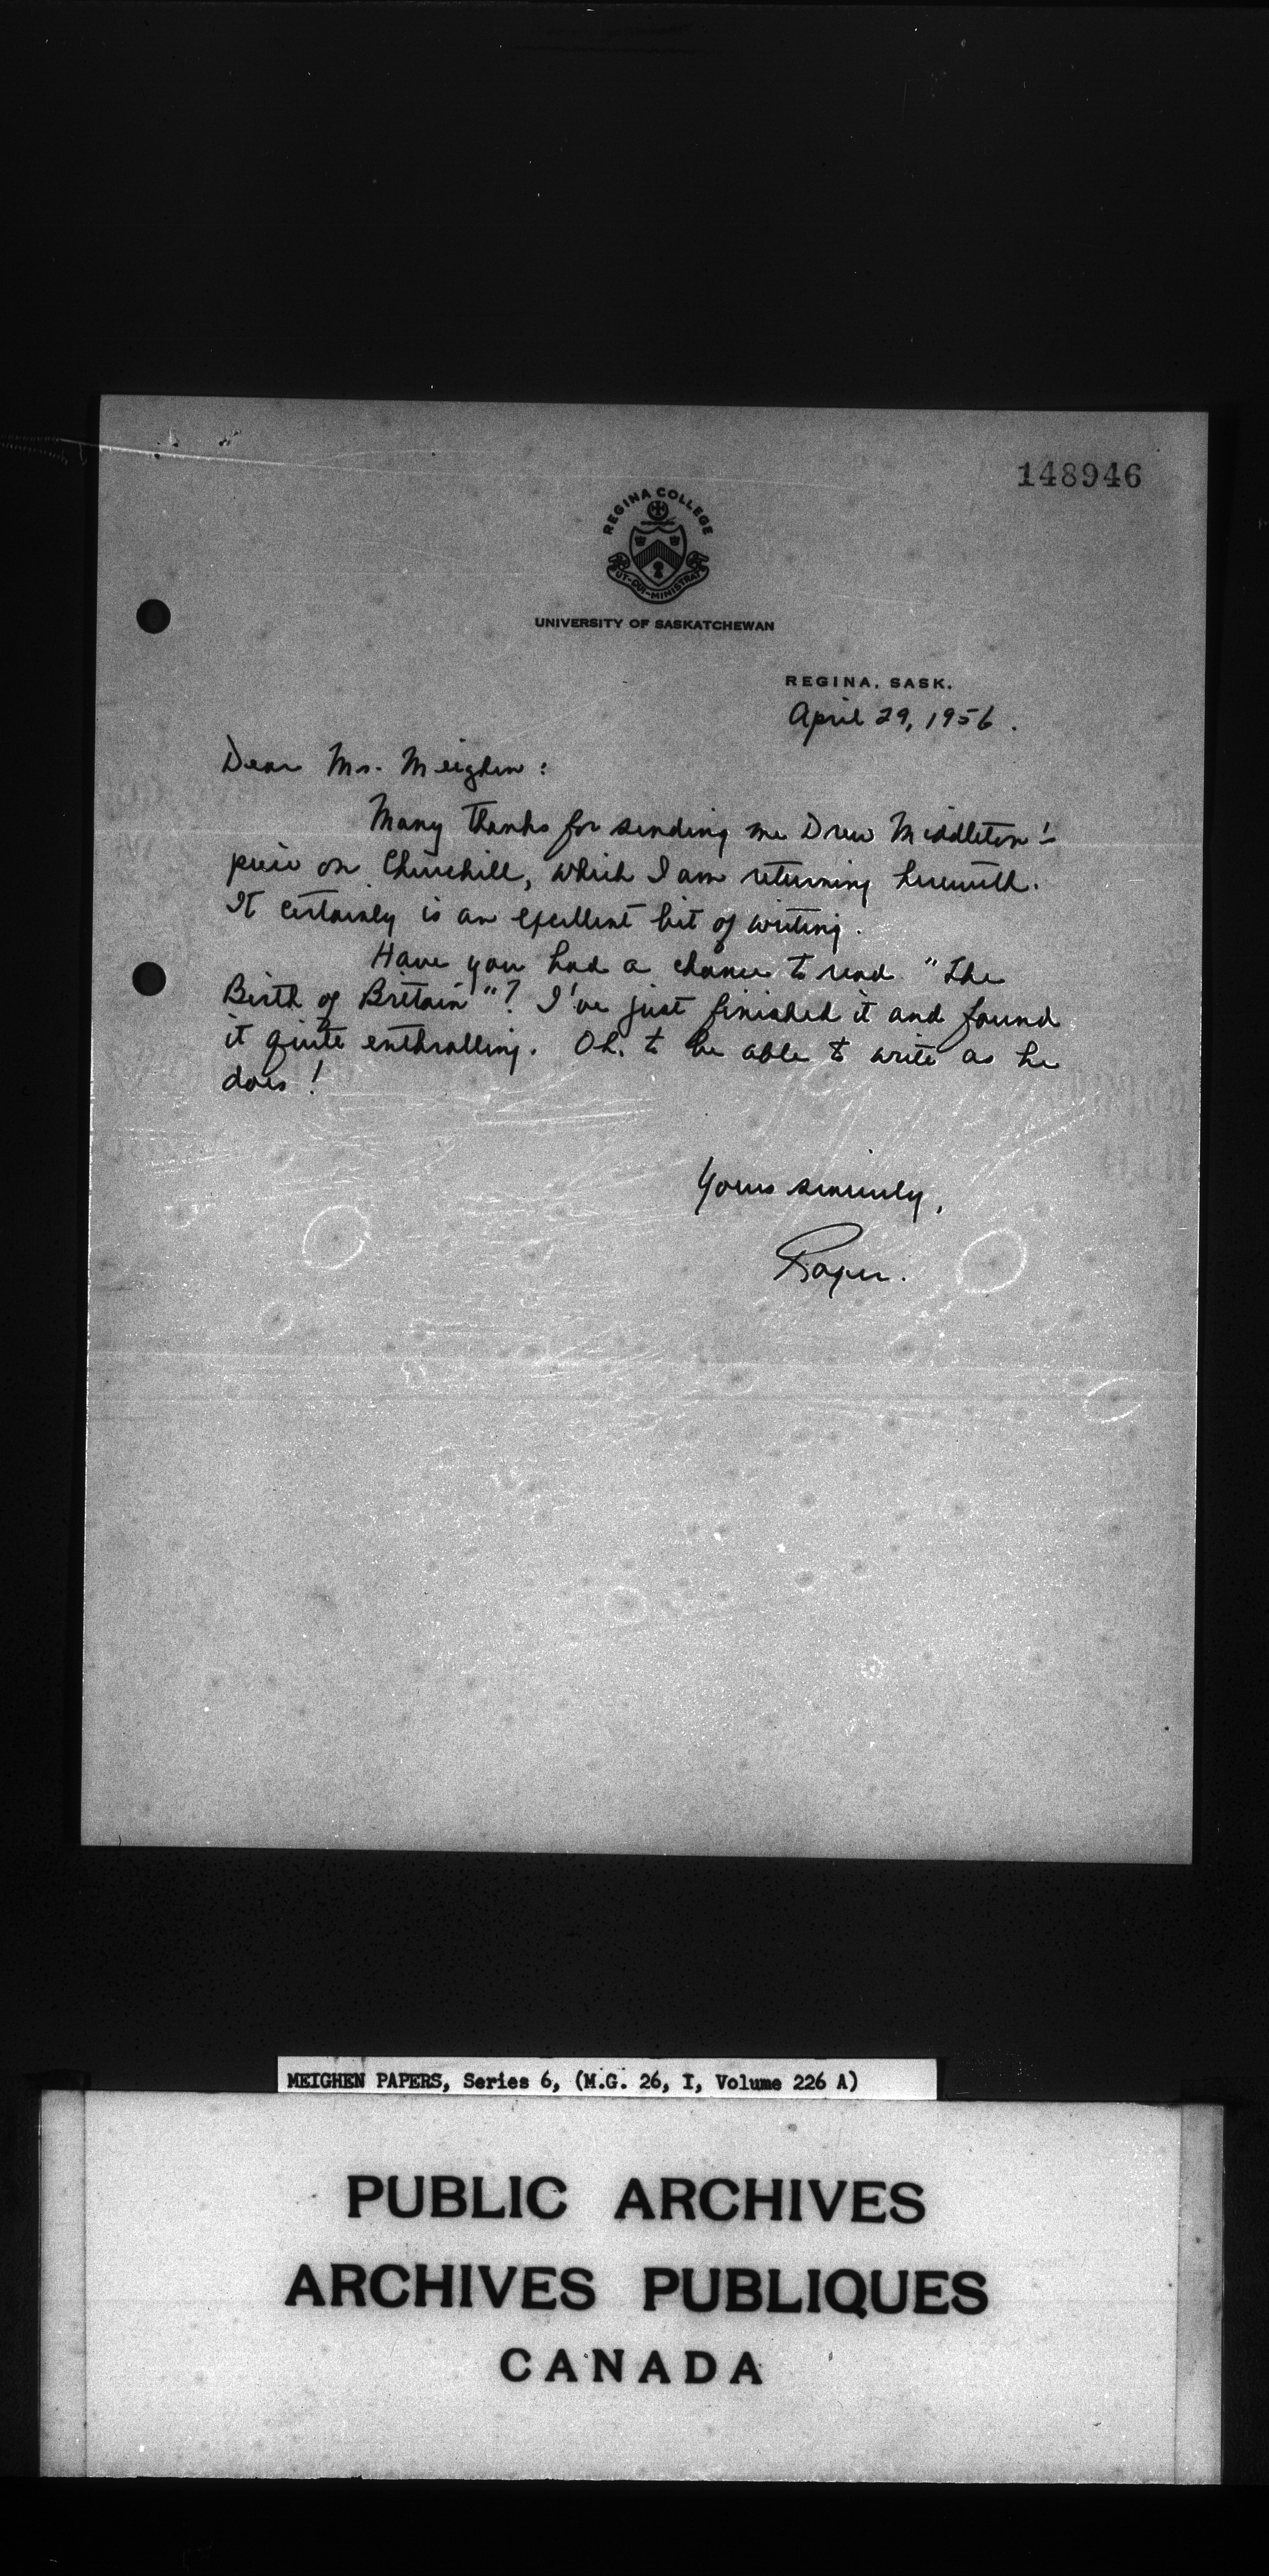 148946
REGINA COLLEGE
UT-QUI-MINISTRAT
UNIVERSITY OF SASKATCHEWAN
REGINA, SASK.
April 29, 1956.
Dear Mr. Meighen:
Many thanks for sending me Drew Middleton's
piece on Churchill, which I am returning herewith.
It certainly is an excellent bit of writing.
Have you had a chance to read "The
Birth of Britain"? I've just finished it and found
it quite enthralling. Oh, to be able to write as he
does!
Yours sincerely,
MEIGHEN PAPERS, Series 6, (M.G. 26, I, Volume 226 A)
PUBLIC ARCHIVES
ARCHIVES PUBLIQUES
CANADA